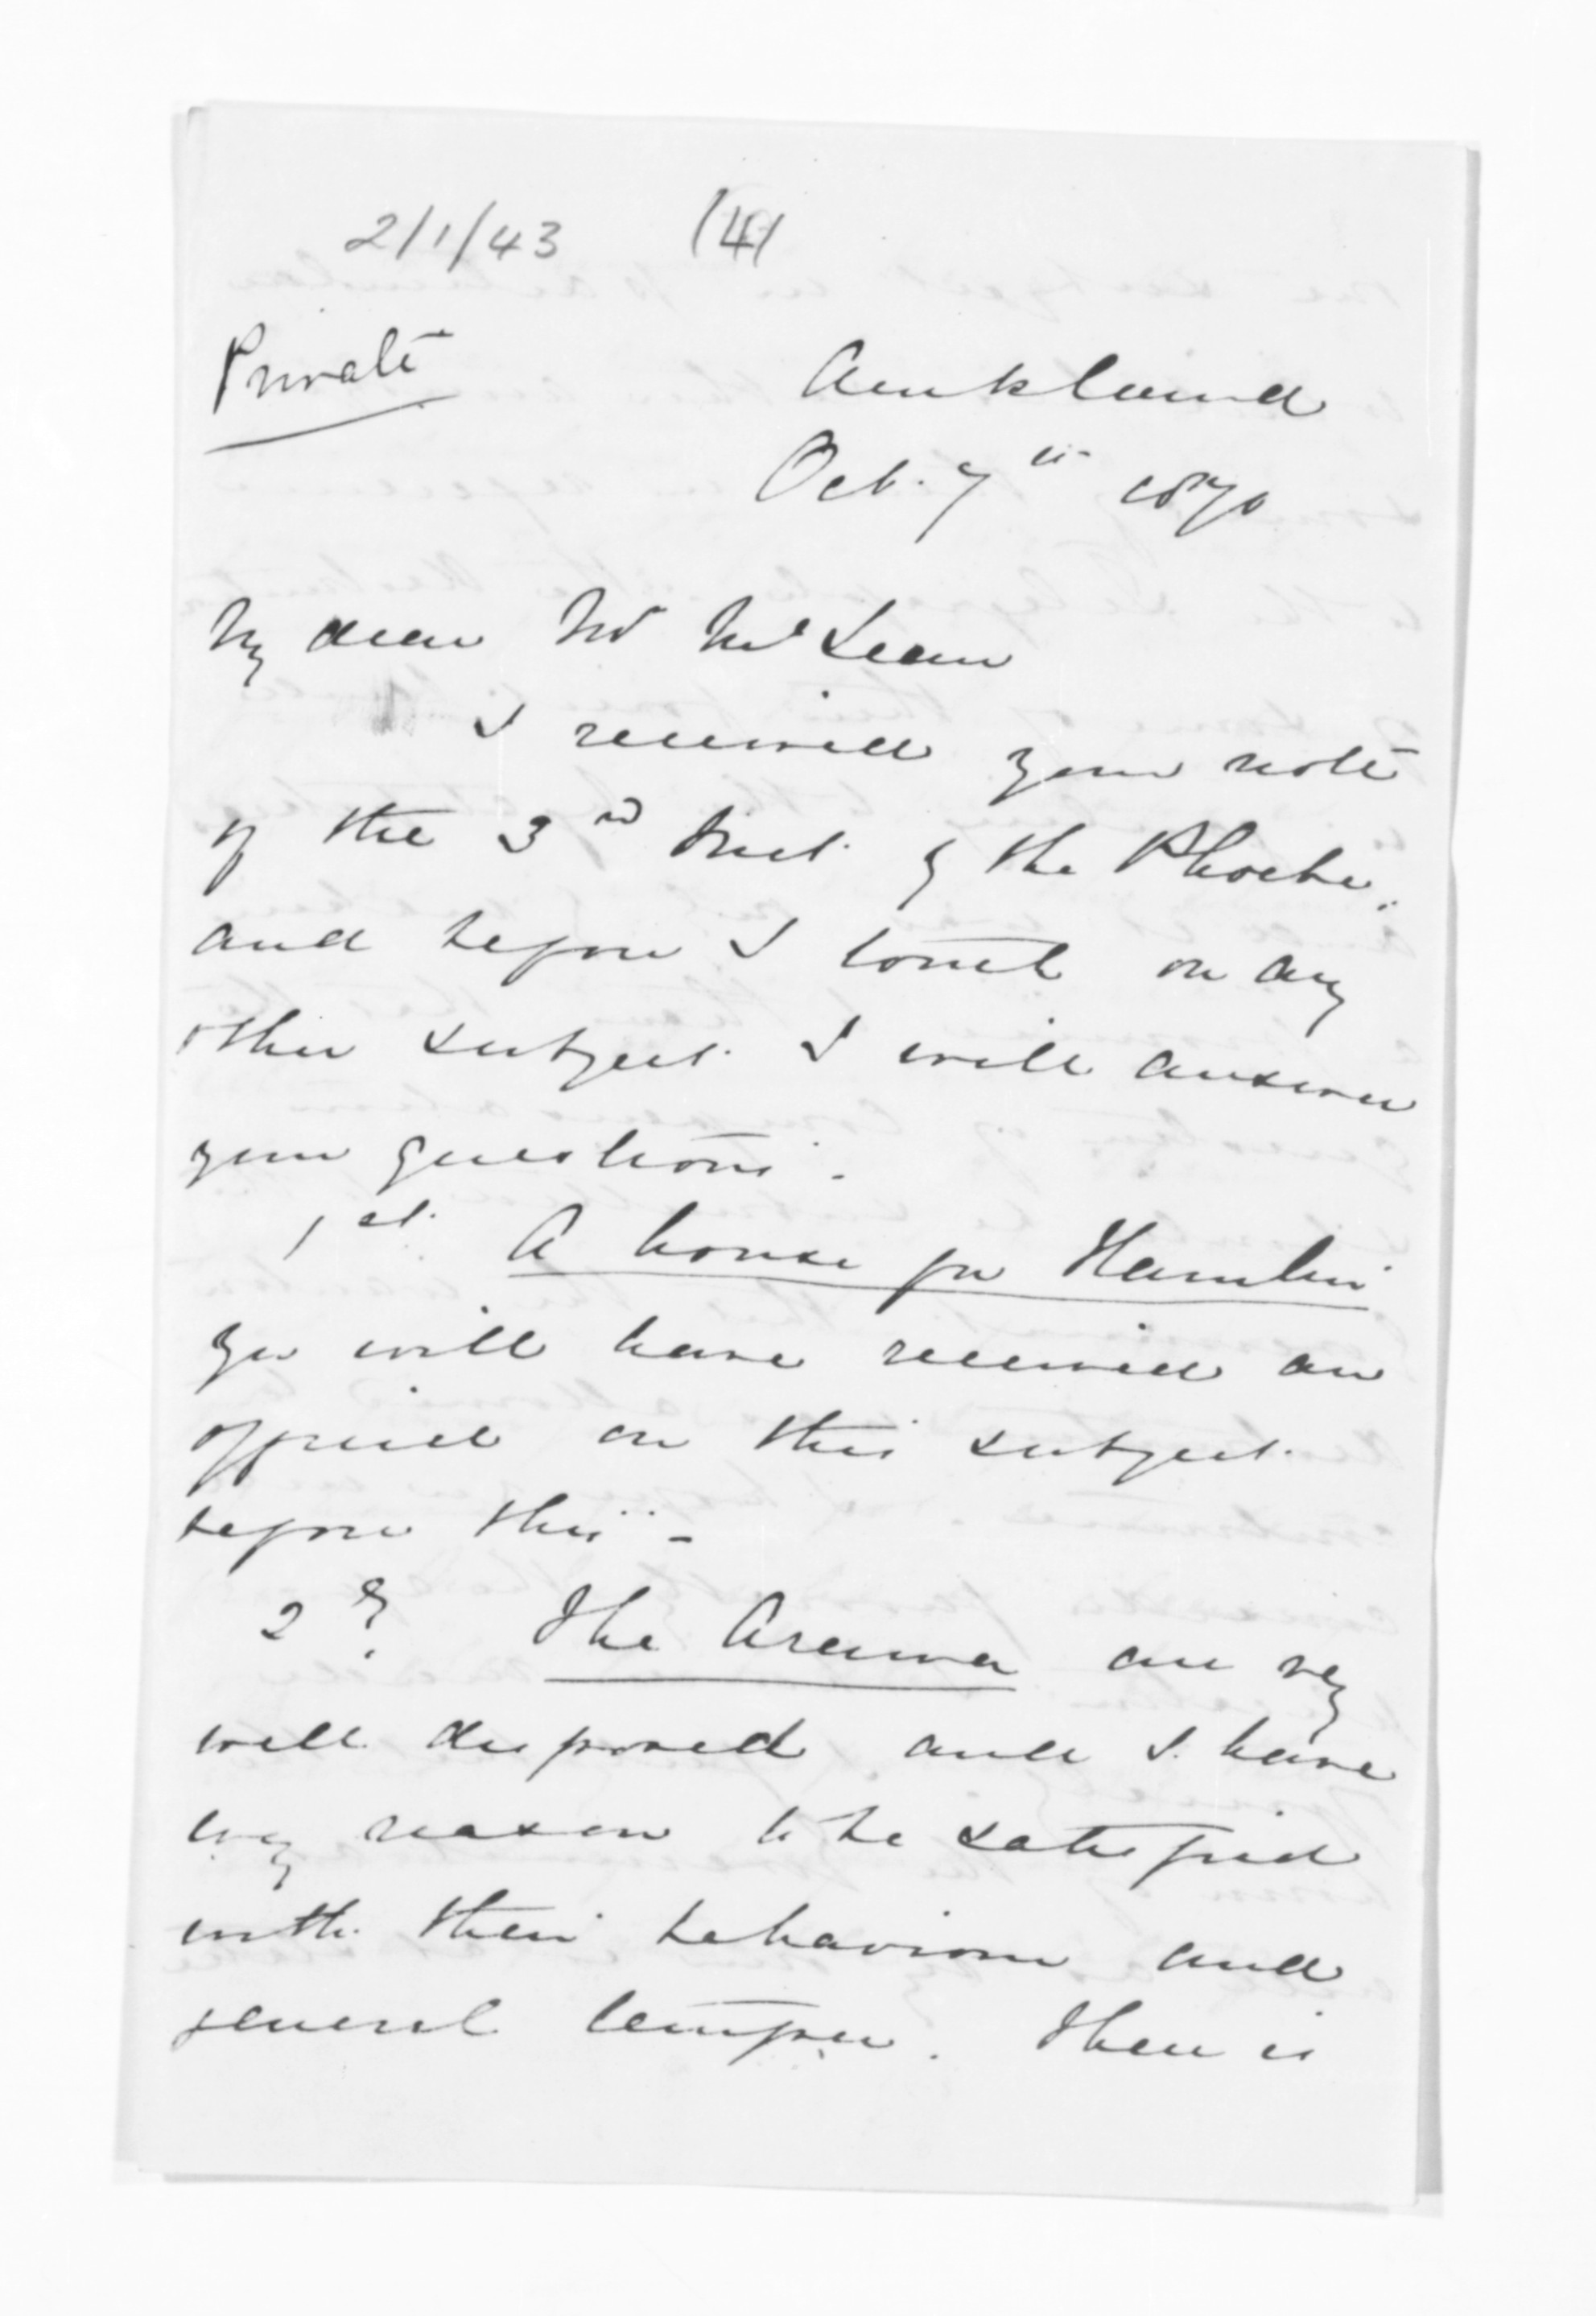 2/1/43 (4)
Private
Auckland
Oct. 7th 1870
My dear Mr McLean
I received your note
of the 3rd Inst. by the Phoebe,
and before I touch on any
other subject I will answer
your questions.
1st. A house for Hamlin
You will have received an
official on this subject
before this -
2d. The Arawa are very
well disposed and I have
every reason to be satisfied
with their behaviour and
general temper. There is